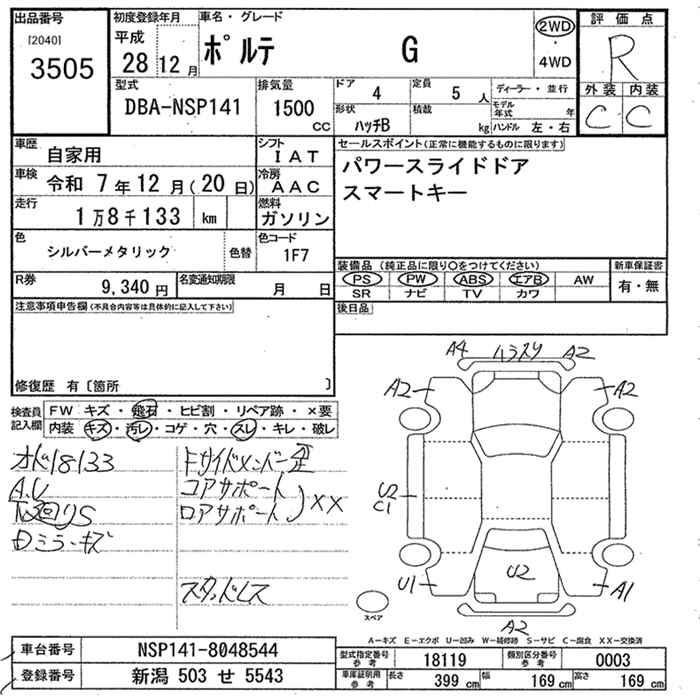 出品番号 初度登録年月 車名・グレード 評価点
[2040]
3505
平成
28 12月
ポルテ G
2WD
・
4WD
R
外装 内装
C C
型式 排気量 ドア 4 定員 5人 ディーラー・並行
DBA-NSP141 1500 CC
モデル年式 年
形状 ハッチB 積載 kg ハンドル 左・右
車歴 自家用
シフト IAT
車検 令和 7年12月(20日)
冷房 AAC
走行 1万8千133 km
燃料 ガソリン
色 シルバーメタリック 色替
色コード 1F7
R券 9,340円 名変通知期限 月 日
セールスポイント(正常に機能するものに限ります)
パワースライドドア
スマートキー
装備品 (純正品に限り○をつけてください) 新車保証書
PS PW ABS エアB AW 有・無
SR ナビ TV カワ
後日品
注意事項申告欄(不具合内容等は具体的に記入して下さい)
修復歴 有〔箇所 〕
検査員記入欄
FW キズ・飛石・ヒビ割・リペア跡・×要
内装 キズ・汚レ・コゲ・穴・スレ・キレ・破レ
オド18133
A.U
下廻りS
Dミラーキズ
Fサイドメンバー歪
コアサポート
ロアサポート
XX
スタッドレス
A4 ハラスリ A2
A2 A2
U2
C1
U1 U2 A1
A2
スペア
A－キズ E－エクボ U－凹み W－補修跡 S－サビ C－腐食 XX－交換済
車台番号 NSP141-8048544
登録番号 新潟 503 せ 5543
型式指定番号 参考 18119 類別区分番号 参考 0003
車庫証明用 参考 長さ 399 cm 幅 169 cm 高さ 169 cm